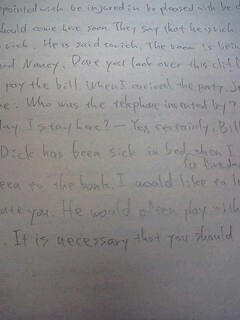 pointed with. be injured in be pleased with be c
should come here soon. They say that he is rich.
sick. He is said to rich. The room is bein
nd Nancy. Dare you look over this clif
pay the bill. When I arrived the party. J
ne. Who was the telephone invented by?
lay I stay here? — Yes, certainly. Bill
Dick has been sick in bed when I
for five da
een to the bank. I would like to
ate you. He would often play with
. It is necessary that you should